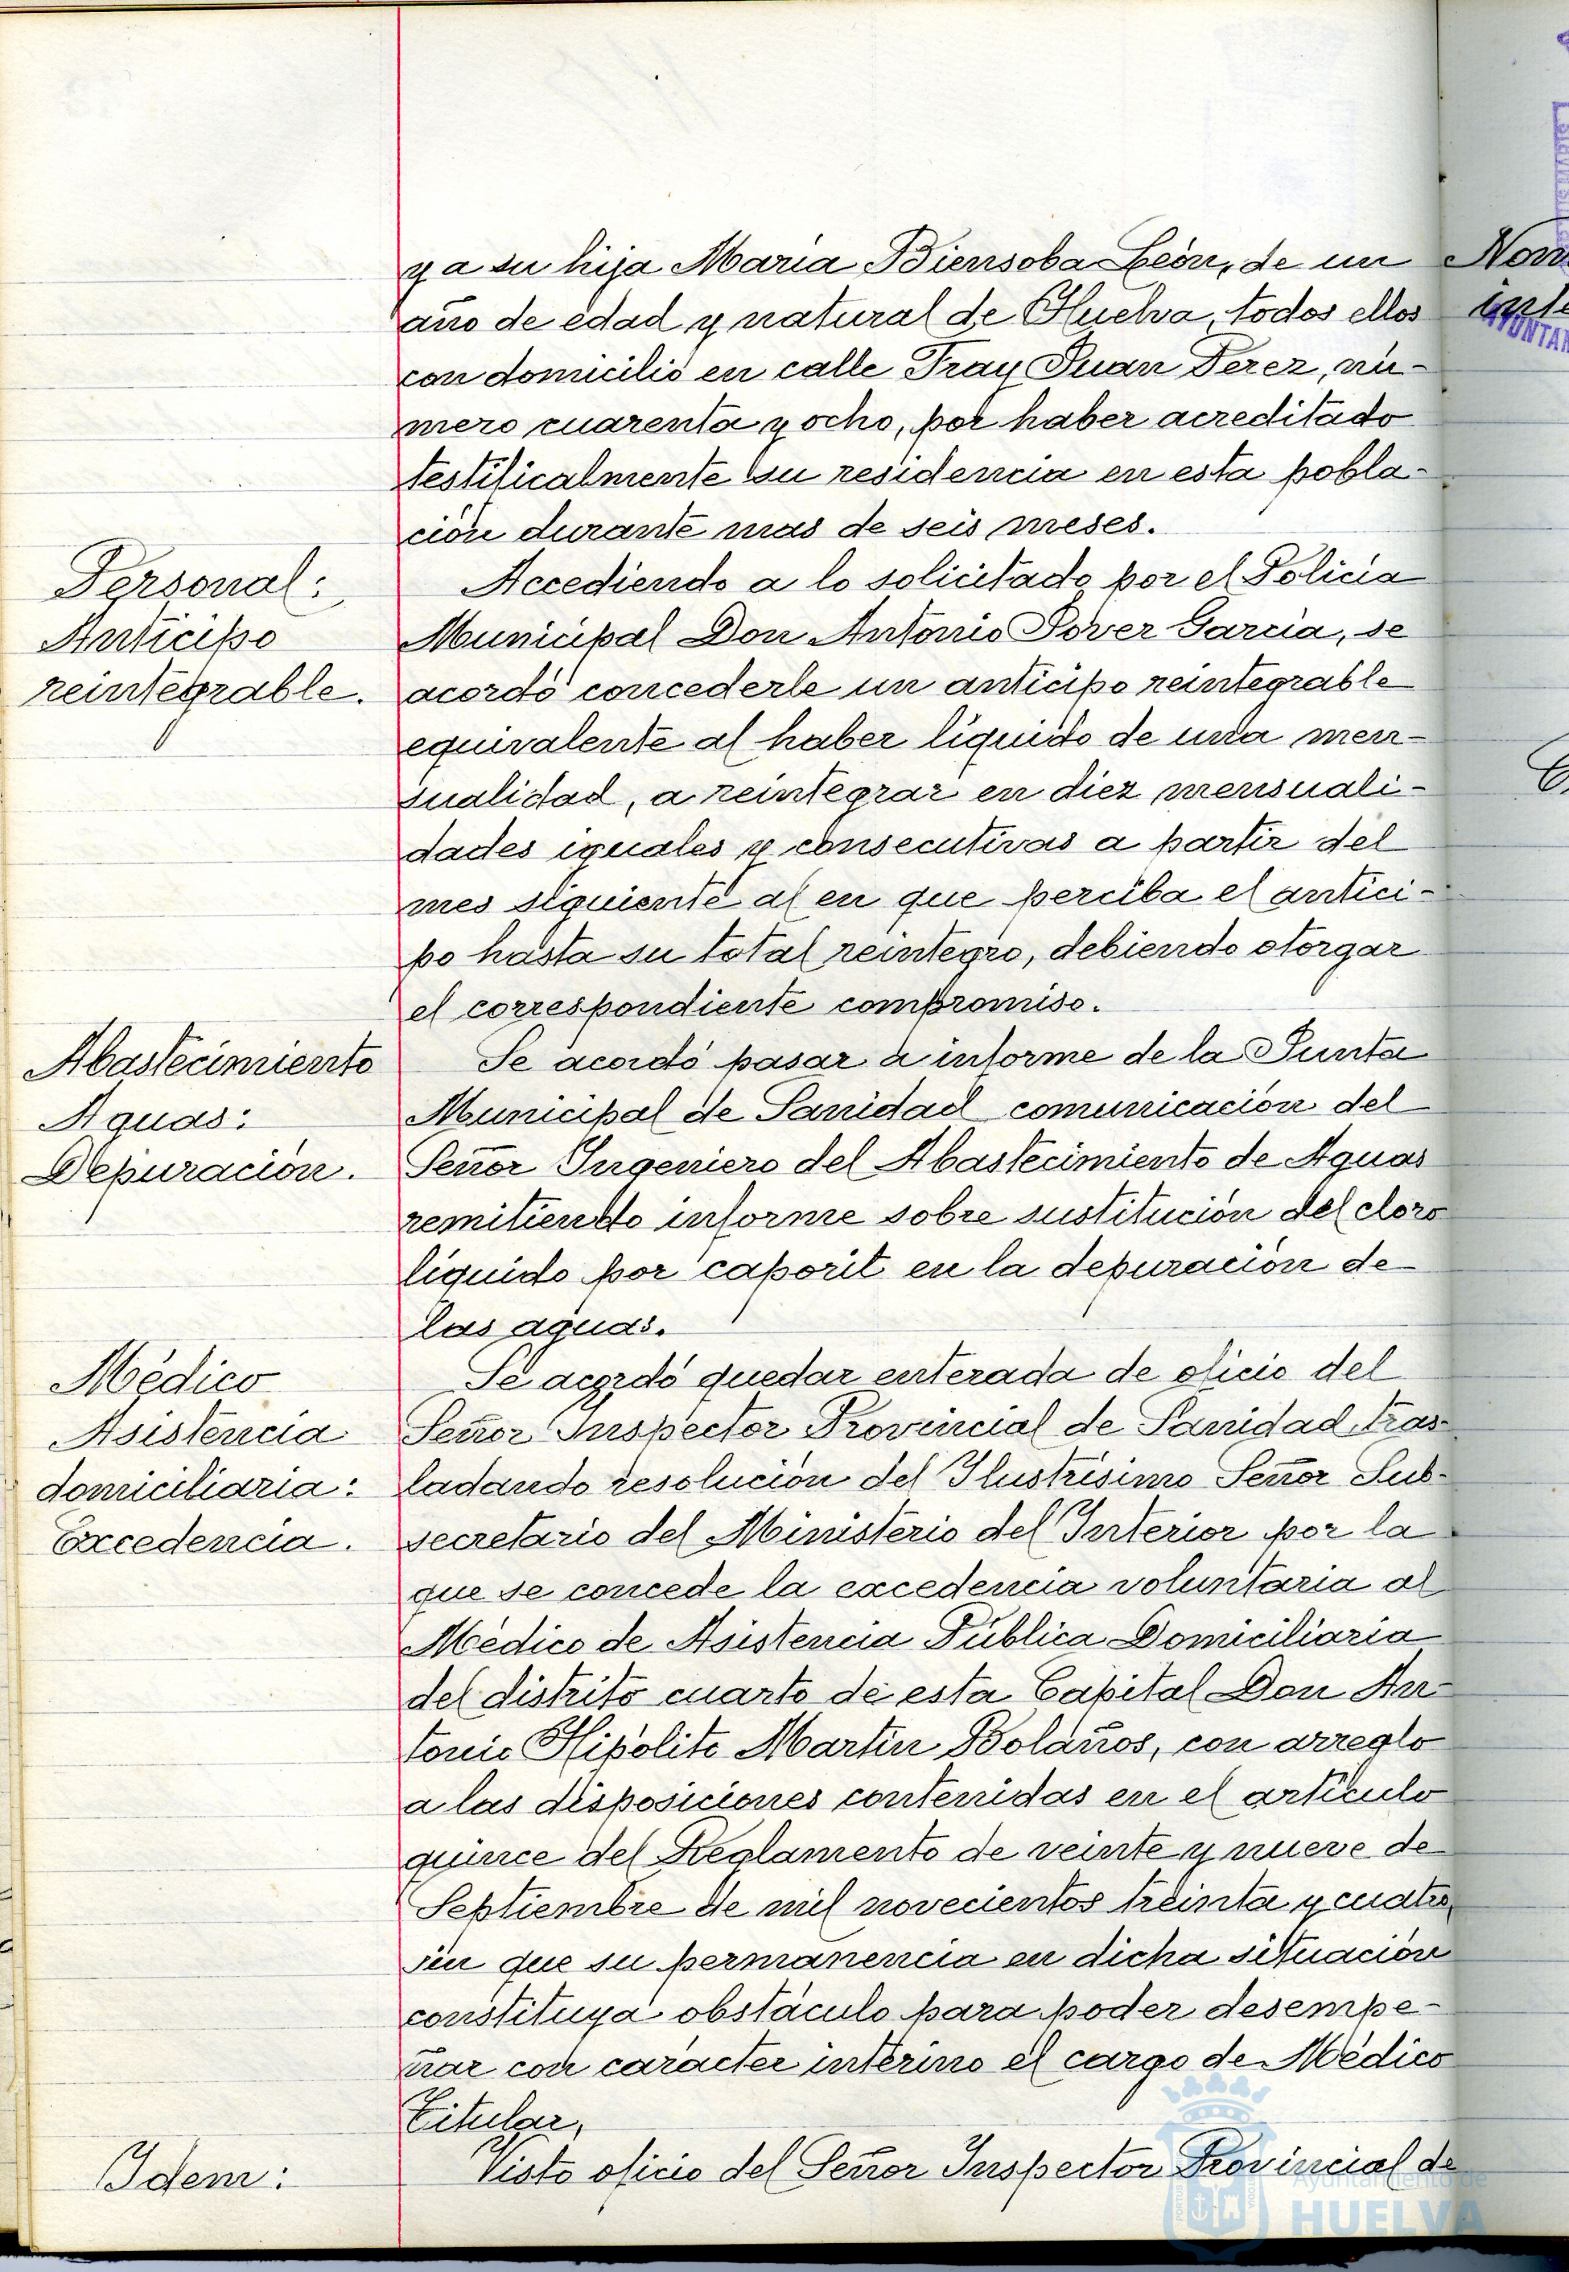 y a su hija Maria Biensoba León, de un
año de edad y natural de Huelva, todos ellos
con domicilio en calle Fray Juan Perez, nú-
mero cuarenta y ocho, por haber acreditado
testificalmente su residencia en esta pobla-
ción durante mas de seis meses.
Personal:
Anticipo
reintegrable.
Accediendo a lo solicitado por el Policia
Municipal Don Antonio Pover Garcia, se
acordó concederle un anticipo reintegrable
equivalente al haber líquido de una men-
sualidad, a reintegrar en diez mensuali-
dades iguales y consecutivas a partir del
mes siguiente al en que perciba el antici-
po hasta su total reintegro, debiendo otorgar
el correspondiente compromiso.
Abastecimiento
Aguas:
Depuración.
Se acordó pasar a informe de la Junta
Municipal de Sanidad comunicación del
Señor Ingeniero del Abastecimiento de Aguas
remitiendo informe sobre sustitución del cloro
líquido por caporit en la depuración de
las aguas.
Médico
Asistencia
domiciliaria:
Excedencia.
Se acordó quedar enterada de oficio del
Señor Inspector Provincial de Sanidad tras-
ladando resolución del Ilustrísimo Señor Sub-
secretario del Ministerio del Interior por la
que se concede la excedencia voluntaria al
Médico de Asistencia Pública Domiciliaria
del distrito cuarto de esta Capital Don An-
tonio Hipólito Martin Bolaños, con arreglo
a las disposiciones contenidas en el artículo
quince del Reglamento de veinte y nueve de
Septiembre de mil novecientos treinta y cuatro,
sin que su permanencia en dicha situación
constituya obstáculo para poder desempe-
ñar con carácter interino el cargo de Médico
Titular.
Idem:
Visto oficio del Señor Inspector Provincial de
Ayuntamiento de
HUELVA